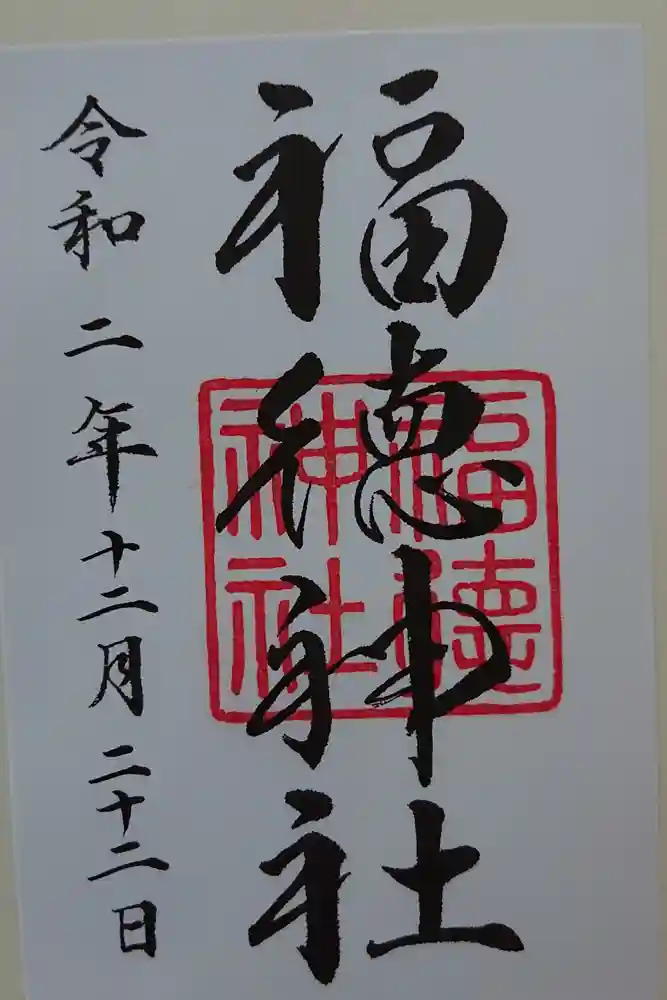 福徳神社
福徳神社
令和二年十二月二十二日